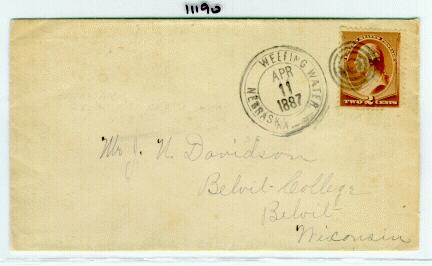 11190
WEEPING WATER
APR
11
1887
NEBRASKA
TWO 2 CENTS
Mr. J. N. Davidson
Beloit College
Beloit
Wisconsin